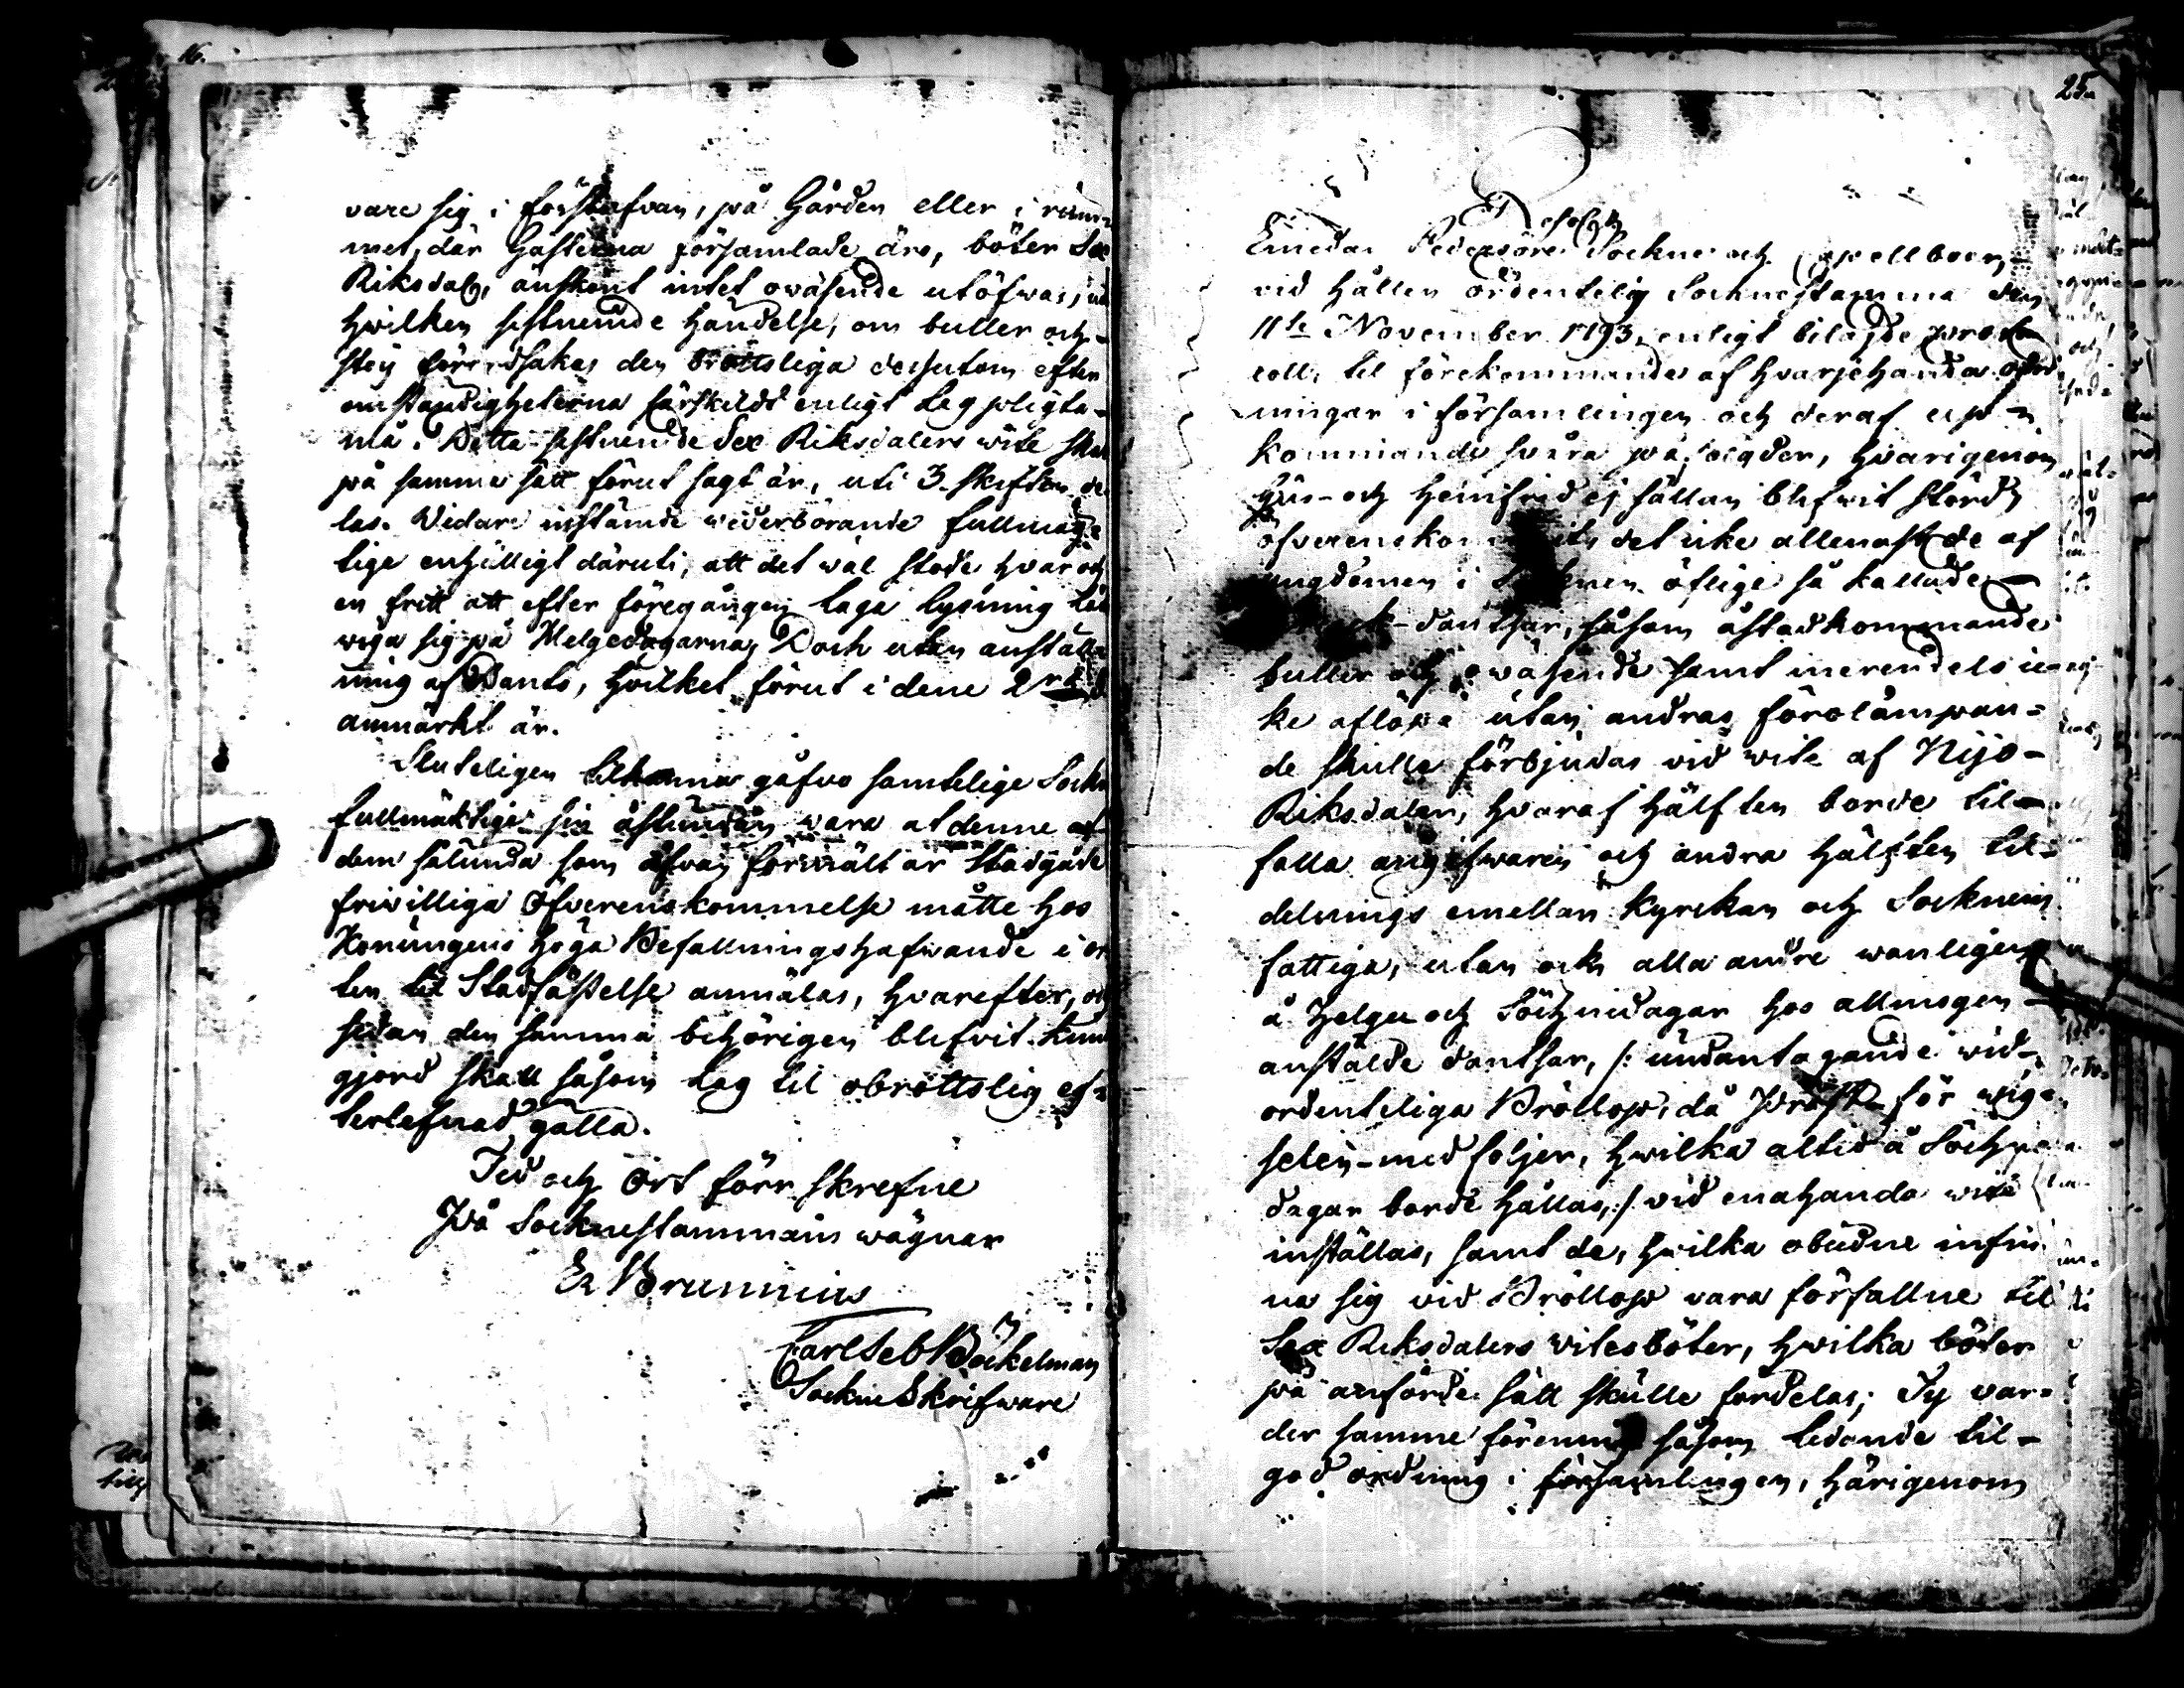 16.
vare sig i förstufvan, på Gården eller i rum-
met, där Gästerna församlade äro, böter Sex
Riksdalr, anskönt intet oväsende utöfwas, vid
hvilken sistnemde händelse, om buller och
stej förordsakas den brottsliga dessutom efter
omständigheterna särskildt enligt Lag pligta
må. Detta sistnemde Sex Riksdalers wite skal
på samma sätt förut sagt är, uti 3. skiften de-
las. Vidare instämde wederbörande fullmäg-
tige enhälligt däruti, att det wäl stode hvar och
en fritt att efter föregången laga lysning låta
wiga sig på Helgedagarna, Doch utan anställ-
ning af Dants, hvilket förut i dene 2
anmärkt är.
Sluteligen tilkänna gåfvo samtelige Sockne
fullmäktige sin åstundan vara at denne af
dem sålunda som ofvan förmält är stadgade
friwilliga Öfverenskommelse måtte hos
Konungens Höga Befallningshafwande i or-
ten til Stadfästelse anmälas, hvarefter, och
sedan den samma behörigen blifvit kun-
gjord skall såsom Lag til obrottslig ef-
terlefnad gälla.
Tid och Ort förr skrefne
På Socknestämmans wägnar
Er Brunnius
Carl Seb Böckelman
Sockne Skrifware
25.
Emedan Pedersöre Sockne och Capellboer
vid hållen ordentelig Sochnestämma den
11te November 1793, enligt bilagde proto-
coll, til förekommande af hvarjehanda oord-
ningar i församlingen och deraf upp-
kommande svåra påfölgder, hvarigenom
Hus- och Hemfrid ej sällan blifwit störd,
öfverenskommits det icke allenast de af
ungdomen i Socknen öflige så kallade
dantsar, såsom åstadkommande
buller och oväsende samt merendels ic-
ke aflöpa utan andras förolämpan-
de skulle förbjudas vid wite af Nijo
Riksdaler, hvaraf hälften borde til-
falla angifwaren och andra hälften til
delnings emellan Kyrckan och Socknens
fattiga, utan ock alla andre wanligen
å Helge och Söchnedagar hos allmogen
anstälde dantsar, /: undantagande wid
ordenteliga Bröllop, då Präst för wig-
selen med följer, hwilka altid å Söchne
dagar borde hållas, :/ vid enahanda wite
inställas, samt de, hwilka obudne infin-
na sig vid Bröllop vara förfallne til
Sex Riksdalers vitesböter, hwilka böter
på anförde sätt skulle fördelas; Ty var-
der samme förening såsom ledande til
god ordning i församlingen, härigenom